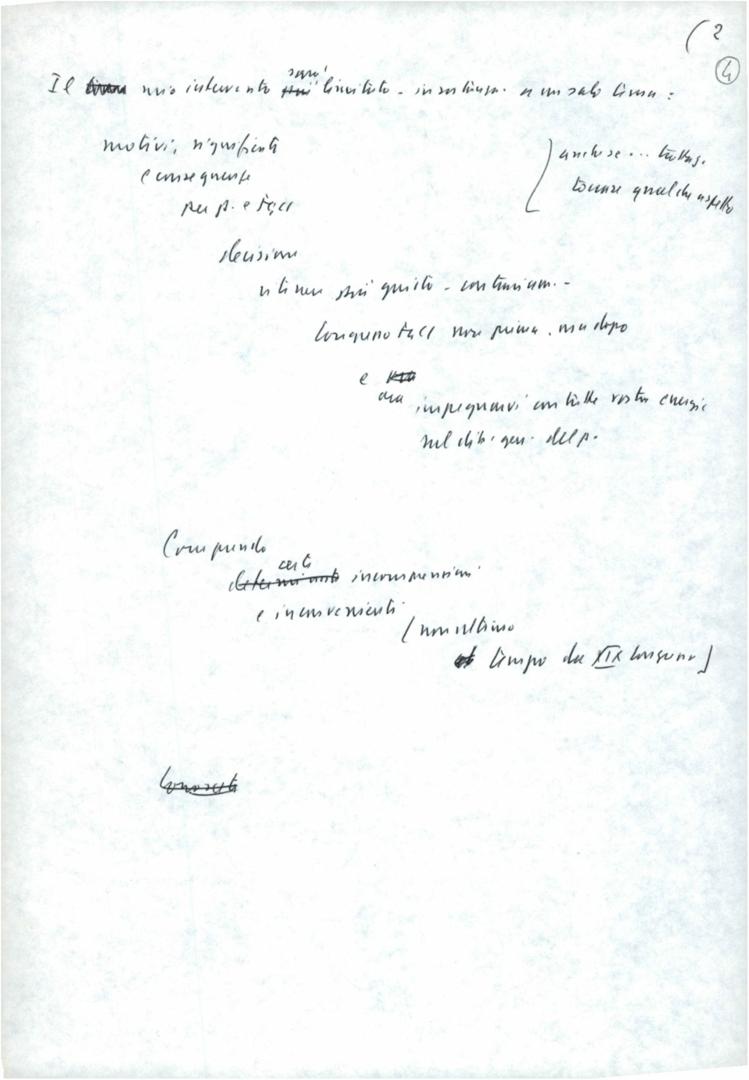 ( 2
4
sarà
Il mio intervento limitato - in sostanza - a un solo tema:
motivi, significati
e conseguenze
per p. e FGCI
anche se ... tuttav.
toccare qualche aspetto
decisione
ritenere più giusto - contrariam. -
Congresso FGCI non prima, ma dopo
e
ora impegnarvi con tutte vostre energie
sul dib. gen. del p.
Comprendo
certe
determinate incomprensioni
e inconvenienti
(non ultimo
tempo da XIX Congresso)
Conoscete